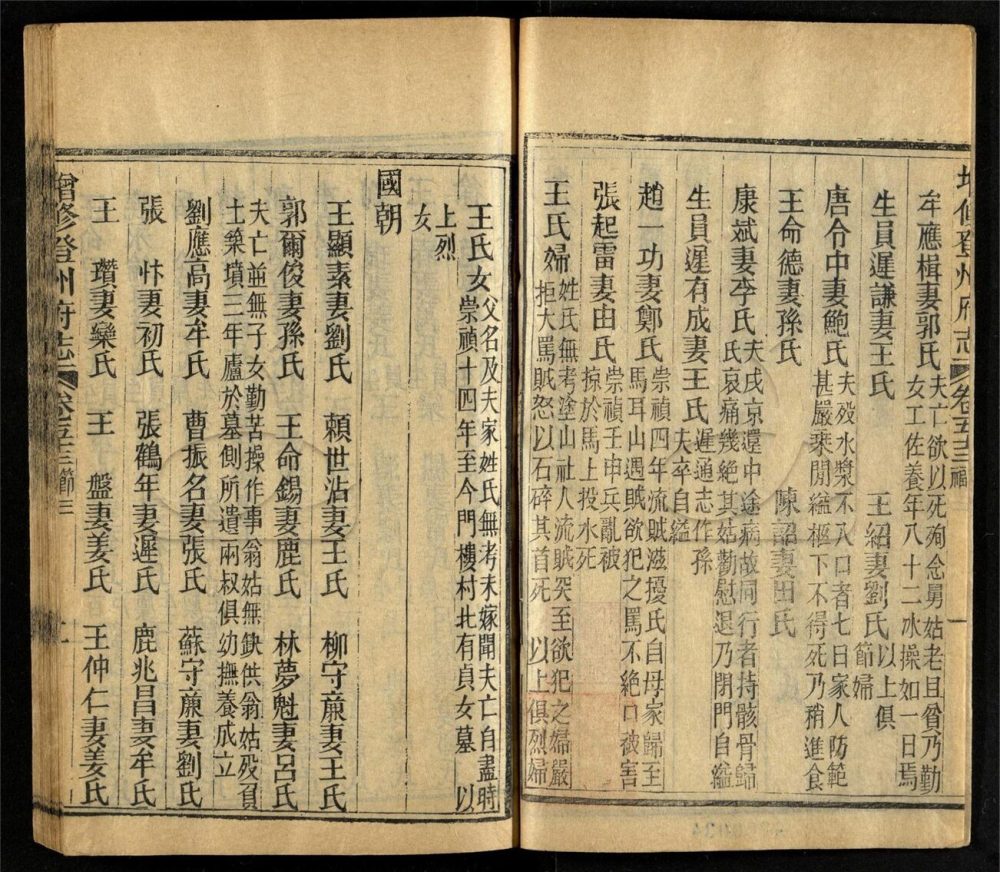 增修登州府志 卷五十三
一
牟應楫妻郭氏夫亡欲以死殉念舅姑老且貧乃勤
女工佐養年八十二水操如一日焉
生員遲謙妻王氏 王紹妻劉氏以上俱
節婦
唐令中妻鮑氏夫歿水漿不入口者七日家人防範
甚嚴乘閒縊柩下不得死乃稍進食
王命德妻孫氏 陳詔妻田氏
康斌妻李氏夫戍京還中途病故同行者持骸骨歸
氏哀痛幾絕其姑勸慰退乃閉門自縊
生員遲有成妻王氏遲通志作孫
夫卒自縊
趙一功妻鄭氏崇禎四年流賊滋擾氏自母家歸至
馬耳山遇賊欲犯之罵不絕口被害
張起雷妻由氏崇禎壬申兵亂被
掠於馬上投水死
王氏婦姓氏無考塗山社人流賊突至欲犯之婦嚴
拒大罵賊怒以石碎其首死 以上俱烈婦
王氏女父名及夫家姓氏無考未嫁聞夫亡自盡時
崇禎十四年至今門樓村北有貞女墓 以
上烈
女
國朝
王顯素妻劉氏 賴世沾妻王氏 柳守廉妻王氏
郭爾俊妻孫氏 王命錫妻鹿氏 林夢魁妻呂氏
夫亡並無子女勤苦操作事翁姑無缺供翁姑歿負
土築墳三年廬於墓側所遺兩叔俱幼撫養成立
劉應高妻牟氏 曹振名妻張氏 蘇守廉妻劉氏
張 忭妻初氏 張鶴年妻遲氏 鹿兆昌妻牟氏
王 瓚妻欒氏 王 盤妻姜氏 王仲仁妻姜氏
增修登州府志 卷五十三 節三
二